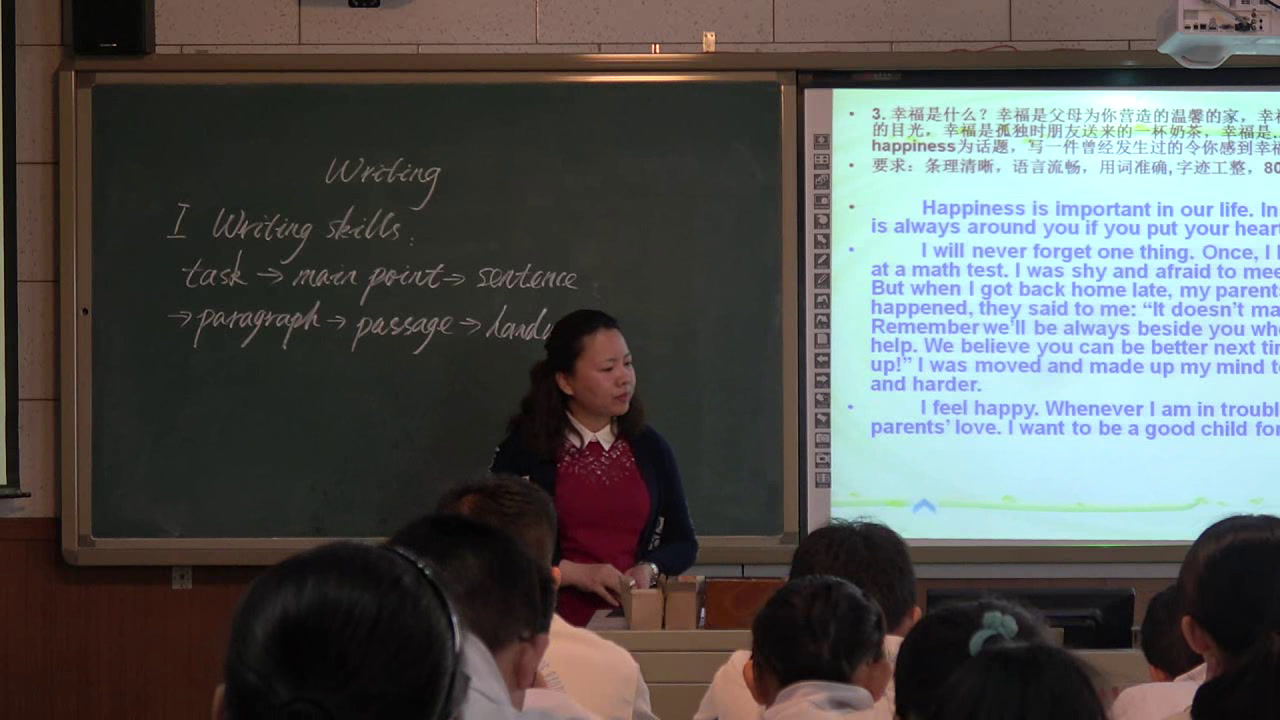 Writing
I Writing skills:
task → main point → sentence
→ paragraph → passage →
3. 幸福是什么？幸福是父母为你营造的温馨的家，幸
的目光，幸福是孤独时朋友送来的一杯奶茶，幸福是
happiness为话题，写一件曾经发生过的令你感到幸
要求：条理清晰，语言流畅，用词准确,字迹工整，80
Happiness is important in our life. In
is always around you if you put your heart
I will never forget one thing. Once, I
at a math test. I was shy and afraid to
But when I got back home late, my parents
happened, they said to me: “It doesn’t
Remember we’ll be always beside you
help. We believe you can be better next
up!” I was moved and made up my mind
and harder.
I feel happy. Whenever I am in
parents’ love. I want to be a good child